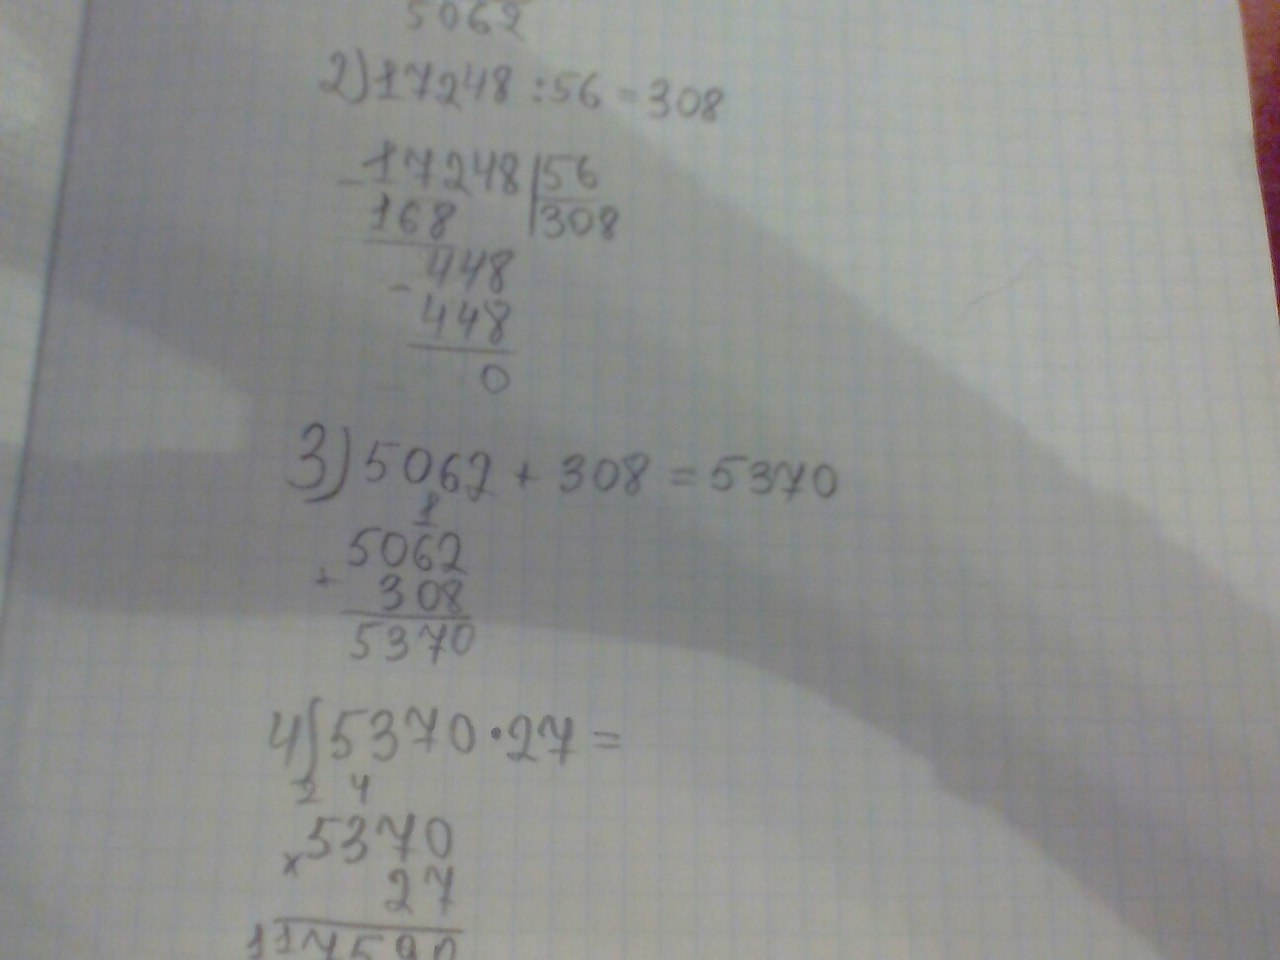 5062
2) 17248 : 56 = 308
- 17248 | 56
168 | 308
- 448
448
0
3) 5062 + 308 = 5370
1
5062
+ 308
5370
4) 5370 · 27 =
2 4
5370
× 27